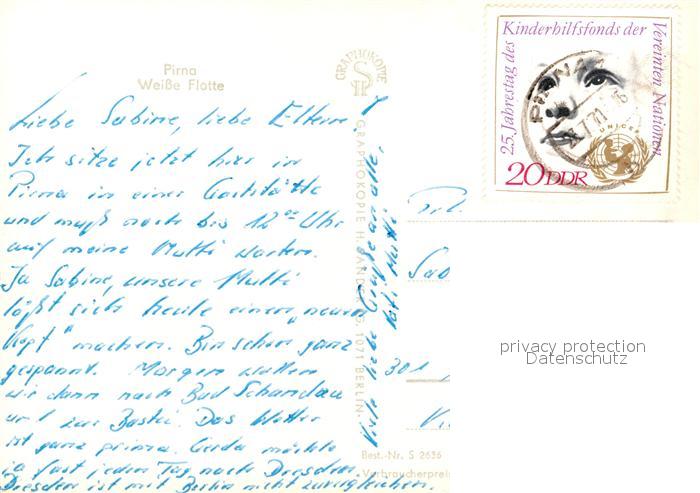 Pirna
Weiße Flotte
Liebe Sabine, liebe Eltern!
Ich sitze jetzt hier in
Pirna in einer Gaststätte
und muß noch bis 12⁰⁰ Uhr
auf meine Mutti warten.
Ja Sabine, unsere Mutti
läßt sich heute einen „neuen
Kopf" machen. Bin schon ganz
gespannt. Morgen wollen
wir dann nach Bad Schandau
und zur Bastei. Das Wetter
ist ganz prima. Gerda möchte
ja fast jeden Tag nach Dresden.
Dresden ist mit Berlin nicht zu vergleichen.
Viele liebe Grüße an alle,
Mutti
GRAPHOKOPIE
GRAPHOKOPIE H. SANDER KG, 1071 BERLIN
Best.-Nr. S 2636
Verbraucherpreis
25. Jahrestag des Kinderhilfsfonds der Vereinten Nationen
UNICEF
20 DDR
PIRNA
Frl.
301
privacy protection
Datenschutz